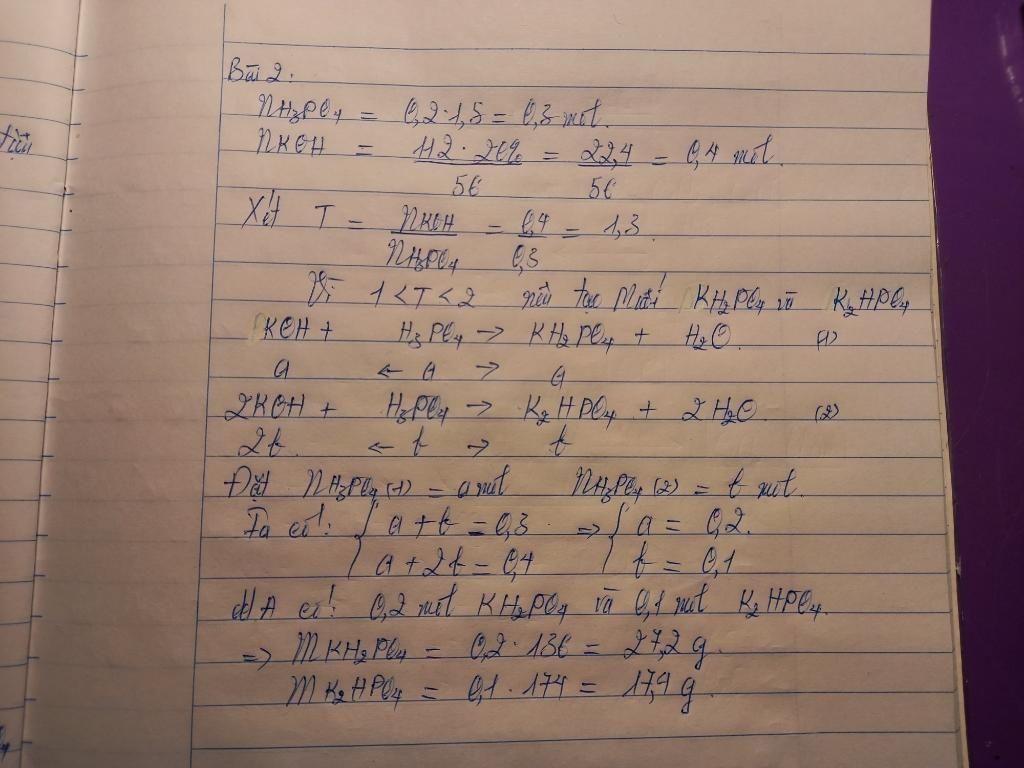 Bài 2:
nH₃PO₄ = 0,2·1,5 = 0,3 mol.
nKOH = 112·20% / 56 = 22,4 / 56 = 0,4 mol.
Xét T = nKOH / nH₃PO₄ = 0,4 / 0,3 = 1,3.
Vì 1 < T < 2 nên tạo muối KH₂PO₄ và K₂HPO₄
KOH + H₃PO₄ → KH₂PO₄ + H₂O. (1)
a ← a → a
2KOH + H₃PO₄ → K₂HPO₄ + 2H₂O (2)
2b ← b → b
Đặt nH₃PO₄(1) = a mol nH₃PO₄(2) = b mol.
Ta có: { a + b = 0,3 ⇒ { a = 0,2.
a + 2b = 0,4 b = 0,1
dd A có: 0,2 mol KH₂PO₄ và 0,1 mol K₂HPO₄.
=> mKH₂PO₄ = 0,2·136 = 27,2 g.
mK₂HPO₄ = 0,1·174 = 17,4 g.